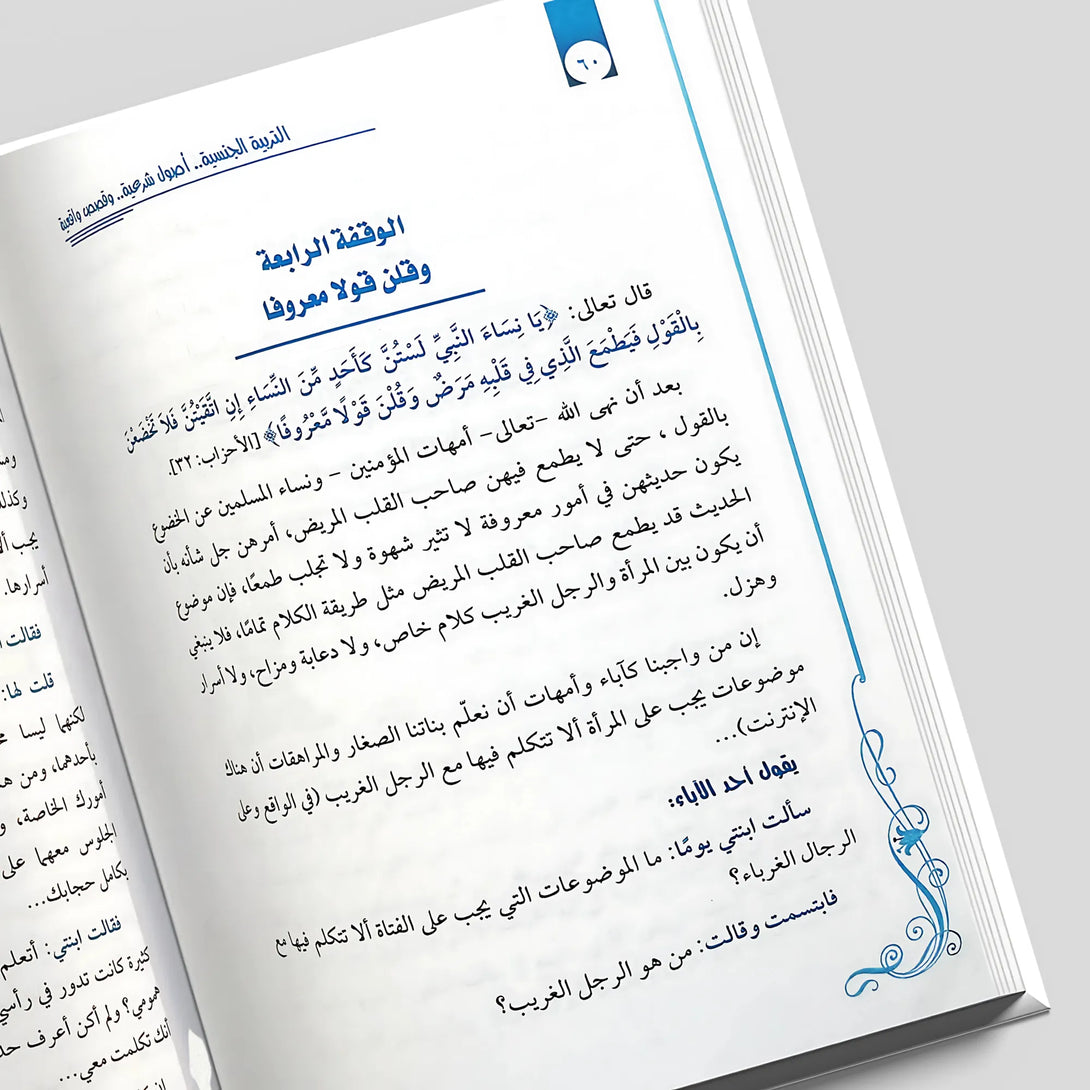 ٦٠
التربية الجنسية.. أصول شرعية.. وقصص واقعية
الوقفة الرابعة
وقلن قولا معروفا
قال تعالى: ﴿يَا نِسَاءَ النَّبِيِّ لَسْتُنَّ كَأَحَدٍ مِّنَ النِّسَاءِ إِنِ اتَّقَيْتُنَّ فَلَا تَخْضَعْنَ
بِالْقَوْلِ فَيَطْمَعَ الَّذِي فِي قَلْبِهِ مَرَضٌ وَقُلْنَ قَوْلًا مَّعْرُوفًا﴾ [الأحزاب: ٣٢].
بعد أن نهى الله -تعالى- أمهات المؤمنين - ونساء المسلمين عن الخضوع
بالقول ، حتى لا يطمع فيهن صاحب القلب المريض، أمرهن جل شأنه بأن
يكون حديثهن في أمور معروفة لا تثير شهوة ولا تجلب طمعًا، فإن موضوع
الحديث قد يطمع صاحب القلب المريض مثل طريقة الكلام تمامًا، فلا ينبغي
أن يكون بين المرأة والرجل الغريب كلام خاص، ولا دعابة ومزاح، ولا أسرار
وهزل.
إن من واجبنا كآباء وأمهات أن نعلّم بناتنا الصغار والمراهقات أن هناك
موضوعات يجب على المرأة ألا تتكلم فيها مع الرجل الغريب (في الواقع وعلى
الإنترنت)...
يقول أحد الآباء:
سألت ابنتي يومًا: ما الموضوعات التي يجب على الفتاة ألا تتكلم فيها مع
الرجال الغرباء؟
فابتسمت وقالت: من هو الرجل الغريب؟
وكذلك
يجب
أسرارها.
فقالت
قلت لها:
لكنهما ليسا
بأحدهما، ومن
أمورك الخاصة،
الجلوس معهما على
بكامل حجابك...
فقالت ابنتي: أتعلم
كثيرة كانت تدور في رأسي
همومي؟ ولم أكن أعرف
أنك تكلمت معي...